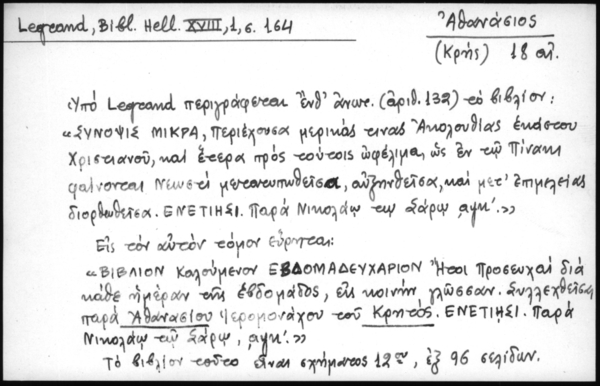 Legrand, Bibl. Hell. XVIII, 1, σ. 164
Ἀθανάσιος
(Κρής) 18 αἰ.
Ὑπό Legrand περιγράφεται ἔνθ' ἄνωτ. (ἀριθ. 132) τό βιβλίον:
«ΣΥΝΟΨΙΣ ΜΙΚΡΑ, περιέχουσα μερικάς τινας Ἀκολουθίας ἑκάστου
Χριστιανοῦ, καί ἕτερα πρός τούτοις ὠφέλιμα, ὡς ἐν τῷ Πίνακι
φαίνονται Νεωστί μετατυπωθεῖσα, αὐξηνθεῖσα, καί μετ' ἐπιμελείας
διορθωθεῖσα. ΕΝΕΤΙΗΣΙ. Παρά Νικολάῳ τῷ Σάρῳ, ͵αψκ'.»
Εἰς τόν αὐτόν τόμον εὕρηται:
«ΒΙΒΛΙΟΝ καλούμενον ΕΒΔΟΜΑΔΕΥΧΑΡΙΟΝ Ἤτοι Προσευχαί διά
κάθε ἡμέραν τῆς ἑβδομάδος, εἰς κοινήν γλῶσσαν. Συλλεχθεῖσαι
παρά Ἀθανασίου Ἱερομονάχου τοῦ Κρητός. ΕΝΕΤΙΗΣΙ. Παρά
Νικολάῳ τῷ Σάρῳ, ͵αψκ'.»
Τό βιβλίον τοῦτο εἶναι σχήματος 12ου, ἐξ 96 σελίδων.